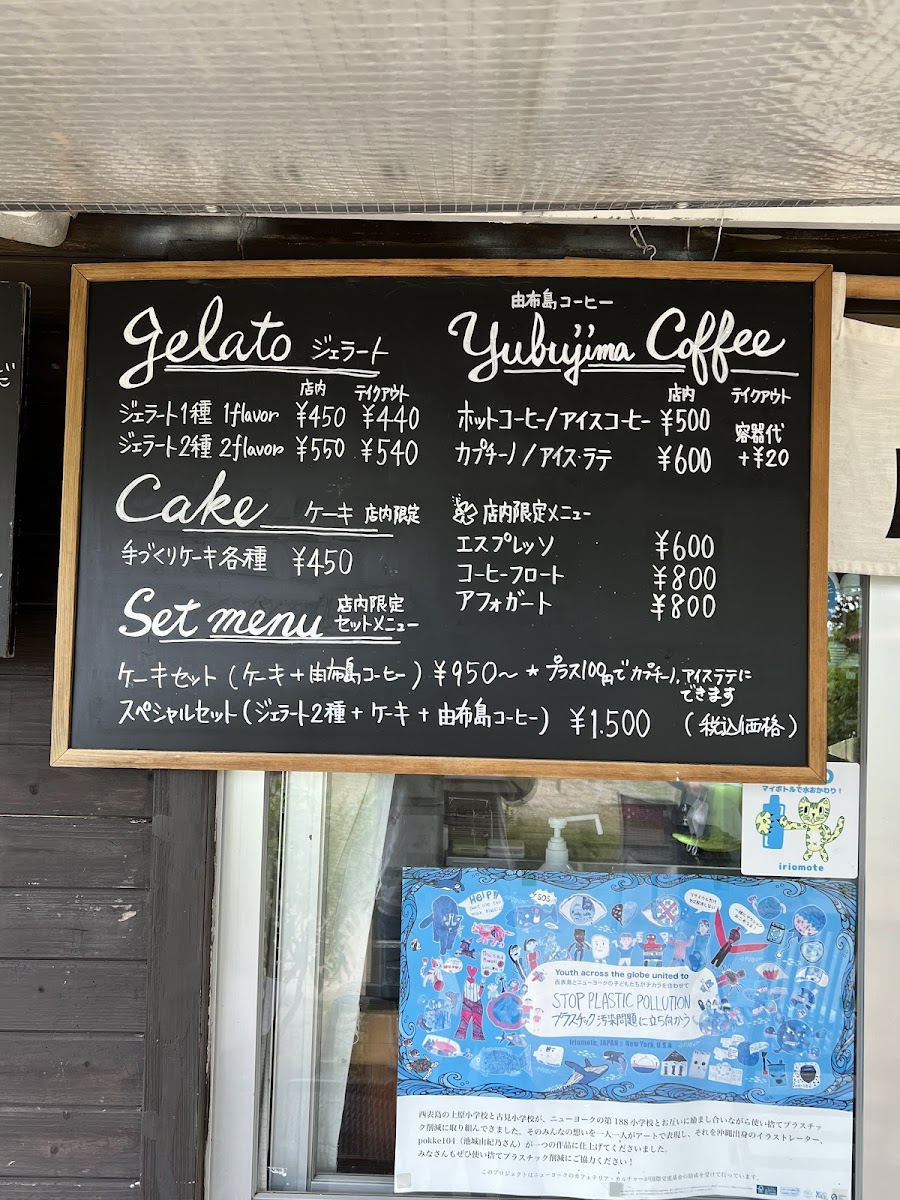 gelato ジェラート
店内 テイクアウト
ジェラート1種 1flavor ¥450 ¥440
ジェラート2種 2flavor ¥550 ¥540
Cake ケーキ 店内限定
手づくりケーキ各種 ¥450
Set menu 店内限定
セットメニュー
由布島コーヒー
Yubujima Coffee
店内 テイクアウト
ホットコーヒー/アイスコーヒー ¥500
容器代
+¥20
カプチーノ/アイス・ラテ ¥600
店内限定メニュー
エスプレッソ ¥600
コーヒーフロート ¥800
アフォガート ¥800
ケーキセット(ケーキ+由布島コーヒー) ¥950〜 *プラス100円でカプチーノ,アイスラテに
できます
スペシャルセット(ジェラート2種+ケーキ+由布島コーヒー) ¥1.500 (税込価格)
マイボトルで水おかわり!
iriomote
HELP!!
SOS
Youth across the globe united to
西表島とニューヨークの子どもたちがチカラを合わせて
STOP PLASTIC POLLUTION
プラスチック汚染問題に立ち向かう
Iriomote, JAPAN & New York, U.S.A
西表島の上原小学校と古見小学校が、ニューヨークの第188小学校とお互いに励まし合いながら使い捨てプラスチッ
ク削減に取り組んできました。そのみんなの想いを一人一人がアートで表現し、それを沖縄出身のイラストレーター、
pokke104(池城由紀乃さん)が一つの作品に仕上げてくださいました。
みなさんもぜひ使い捨てプラスチック削減にご協力ください!
このプロジェクトはニューヨークのカフェテリア・カルチャーが国際交流基金の助成を受けて行っています。